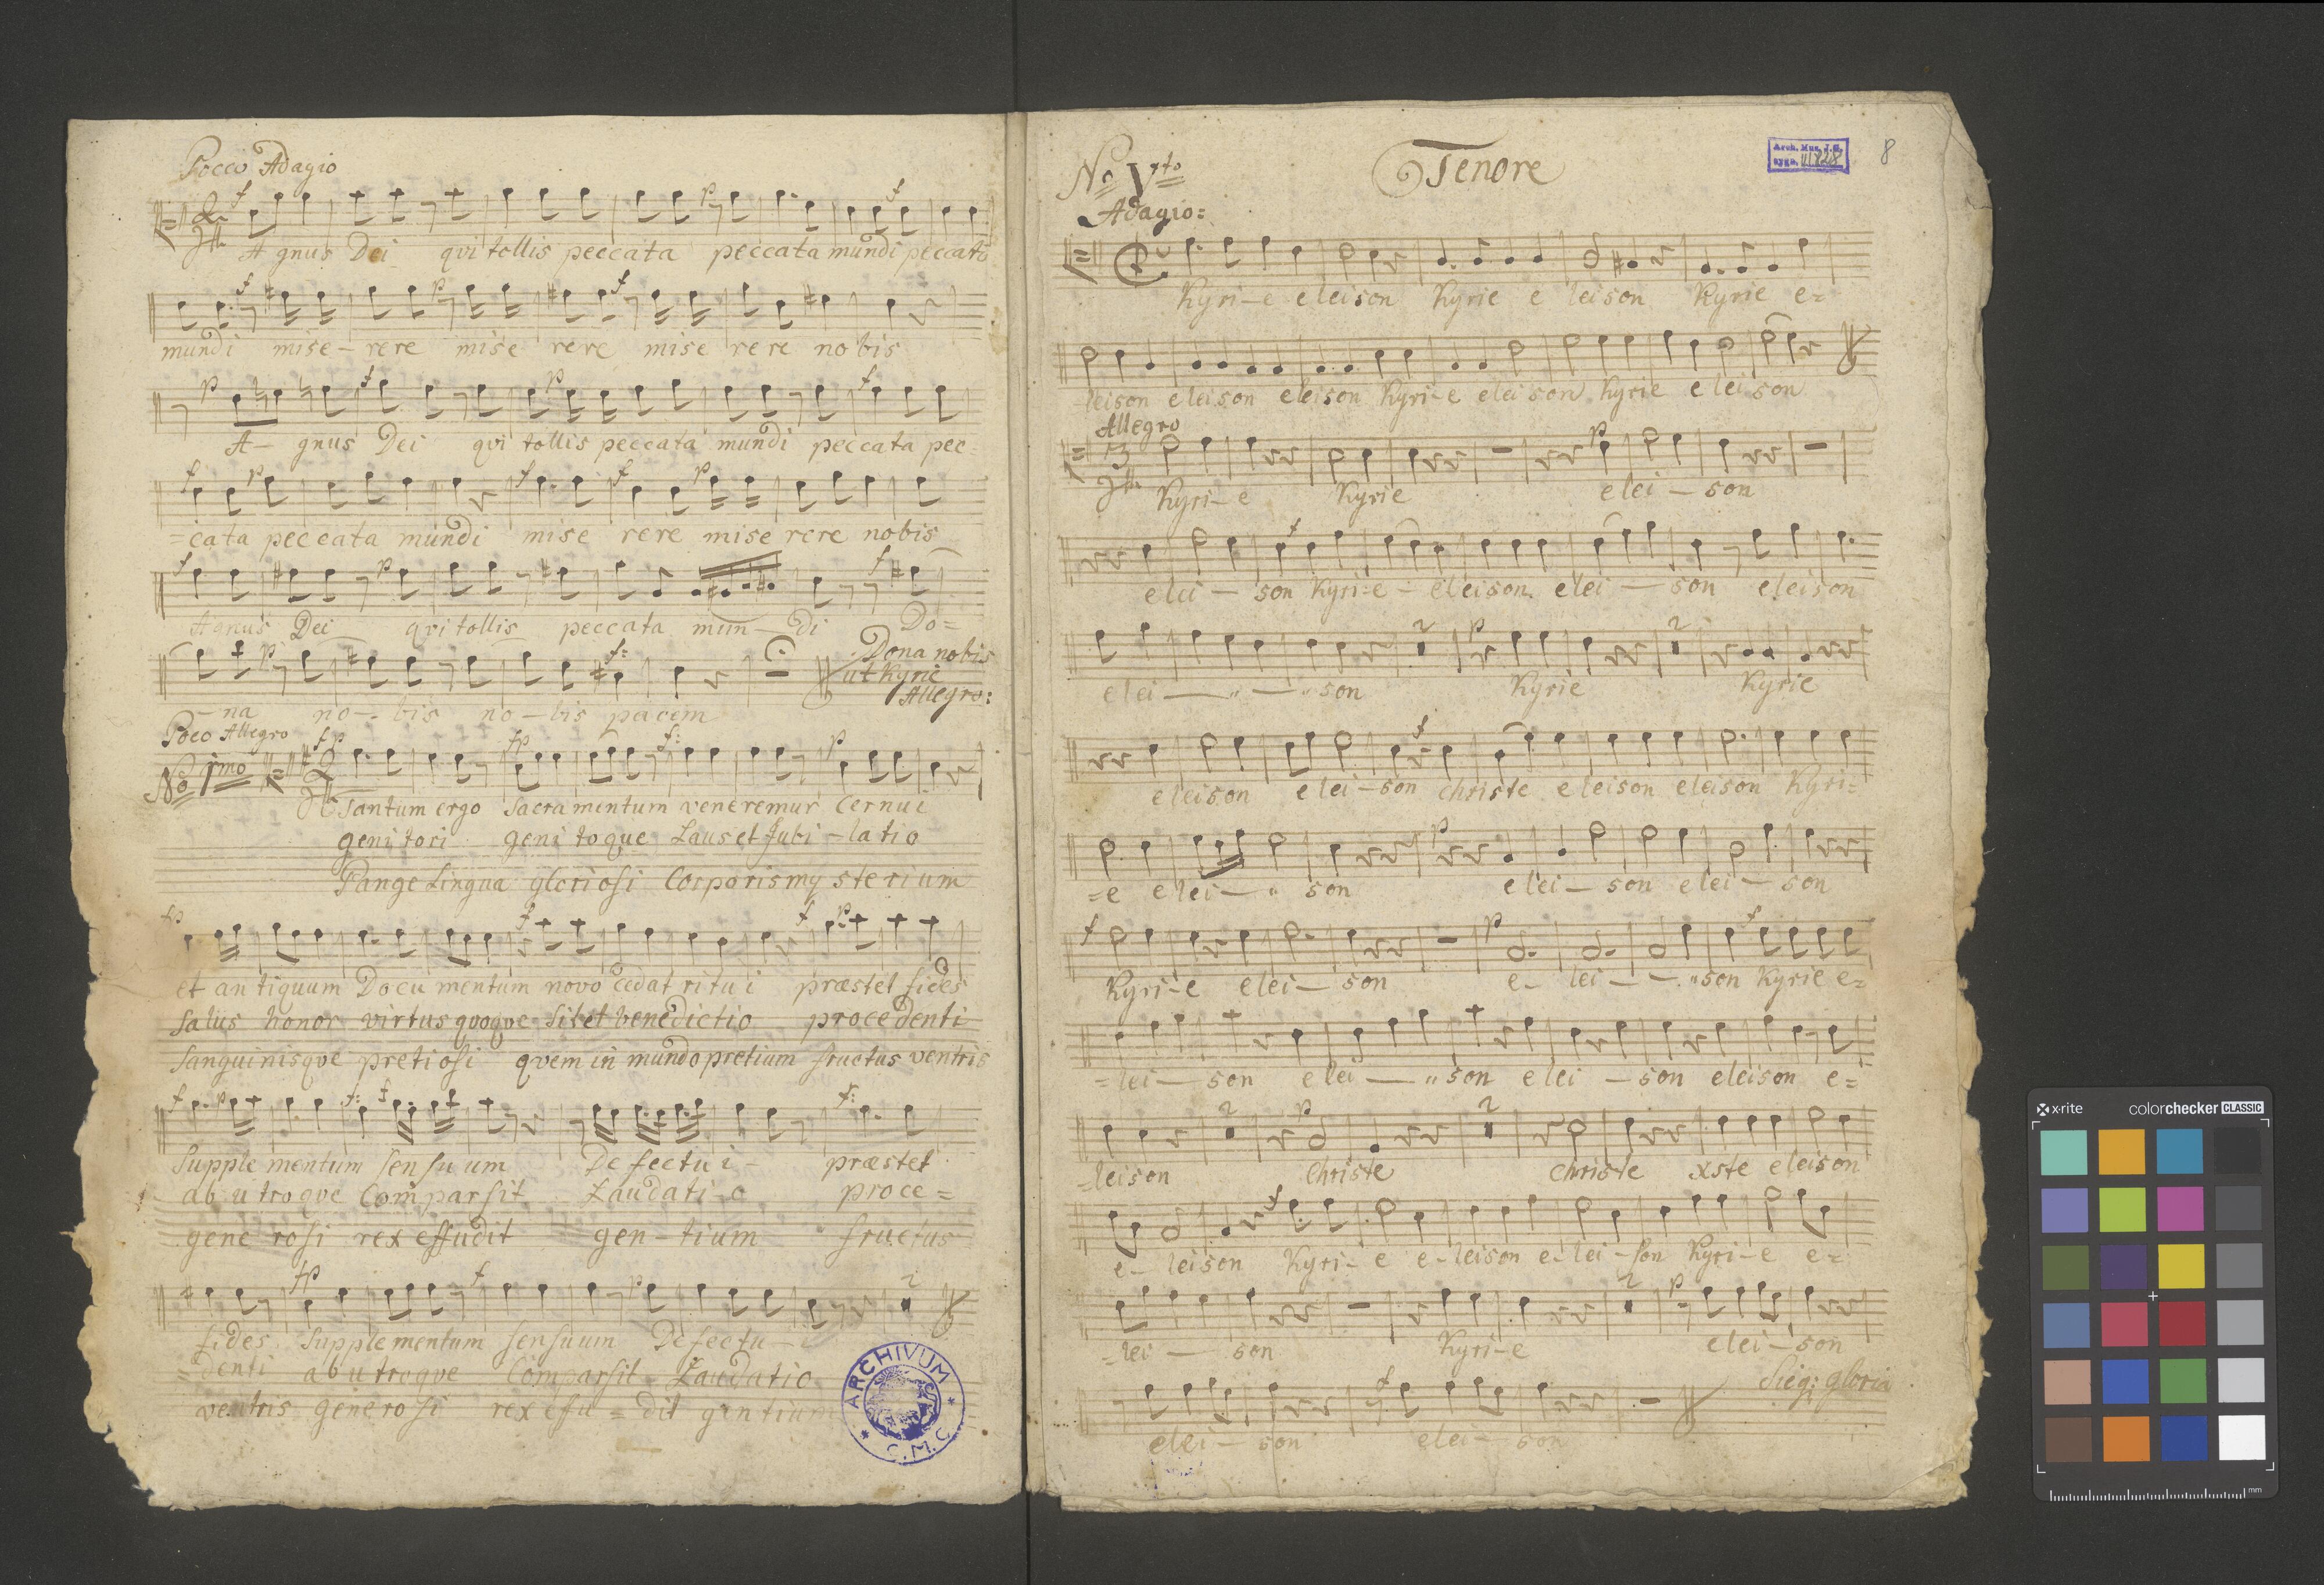 Pocco Adagio
A gnus Dei qui tollis peccata peccata mundi peccata
mundi mise-rere mise rere mise rere nobis
A- gnus Dei qui tollis peccata mundi peccata pec=
=cata peccata mundi mise rere mise rere nobis
Agnus Dei qui tollis peccata mun-di Do=
Dona nobis
ut Kyrie
Allegro:
-na no-bis no-bis pacem
Poco Allegro
No 1mo
Tantum ergo Sacramentum veneremur Cernui
genitori genitoque Laus et Jubi-latio
Pange Lingua gloriosi Corporis my sterium
et antiquum Docu mentum novo cedat ritui præstet fides
Salus honor virtus quoque sit et benedictio procedenti
Sanguinisque pretiosi quem in mundo pretium fructus ventris
Supple mentum sensuum Defectui- præstet
ab utroque Comparsit Laudati-o proce=
gene rosi rex effudit gen-tium fructus
fides Supplementum sensuum Defectu-i
=denti ab utroque Comparsit Laudatio
ventris generosi rex effu=dit gentium
ARCHIVUM
* C.M.C. *
No Vto
Tenore
Arch. Mus. J.G.
sygn.
8
Adagio:
Kyri-e eleison Kyrie e leison Kyrie e=
leison eleison eleison Kyri-e eleison Kyrie eleison
Allegro
3
Kyri-e Kyrie elei-son
elei-son Kyri-e- eleison elei-son eleison
elei-"-"son Kyrie Kyrie
eleison elei-son christe eleison eleison Kyri=
=e elei-" son elei-son elei-son
Kyri-e elei-son e- lei--"son Kyrie e=
=lei-son elei-"son elei-son eleison e=
=leison christe christe xste eleison
e- leison Kyri-e e-leison e-lei-son Kyri-e e=
=lei-son Kyri-e elei-son
Sieg: gloria
elei-son elei-son
x-rite
colorchecker CLASSIC
mm